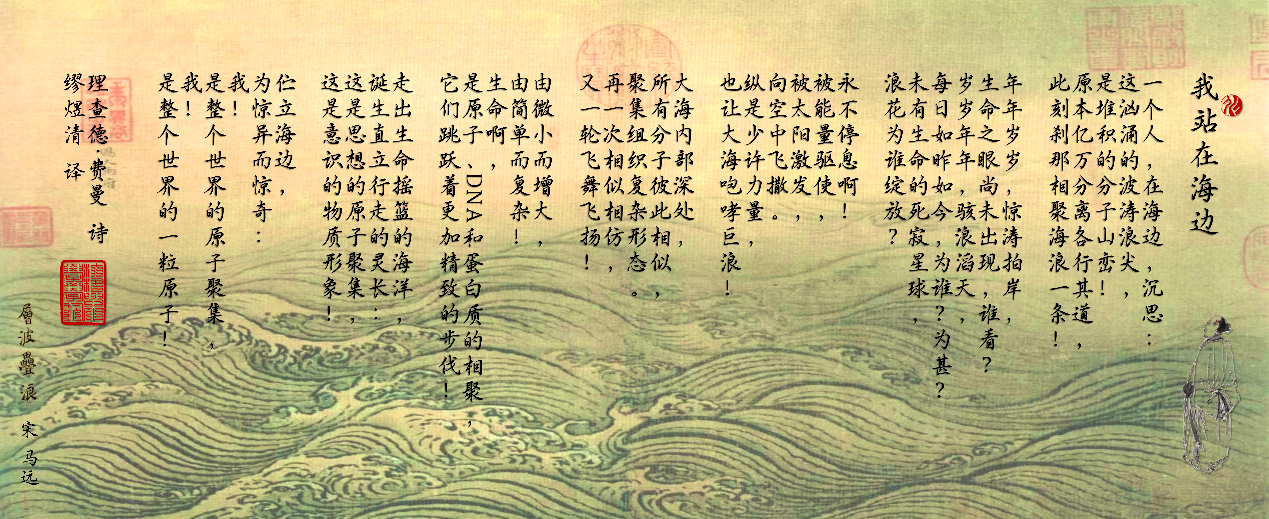 我站在海边
一个人，在海边，沉思：
这汹涌的波涛浪尖，
是堆积的分子山峦！
原本亿万分离各行其道，
此刻刹那相聚海浪一条！
年年岁岁，惊涛拍岸，
生命之眼尚未出现，谁看？
岁岁年年，骇浪滔天，
每日如昨如今，为谁？为甚？
未有生命的死寂星球，
浪花为谁绽放？
永不停息啊！
被能量驱使，
被太阳激发，
向空中飞撒。
纵是少许力量，
也让大海咆哮巨浪！
大海内部深处，
所有分子彼此相似，
聚集组织复杂形态。
再一次相似相仿，
又一轮飞舞飞扬！
由微小而增大，
由简单而复杂！
生命啊，
是原子、DNA和蛋白质的相聚，
它们跳跃着更加精致的步伐！
走出生命摇篮的海洋，
诞生直立行走的灵长：
这是思想的原子聚集，
这是意识的物质形象！
伫立海边，
为惊异而惊奇：
我！
是整个世界的原子聚集，
我！
是整个世界的一粒原子！
理查德·费曼 诗
缪煜清 译
層波疊浪 宋 马远